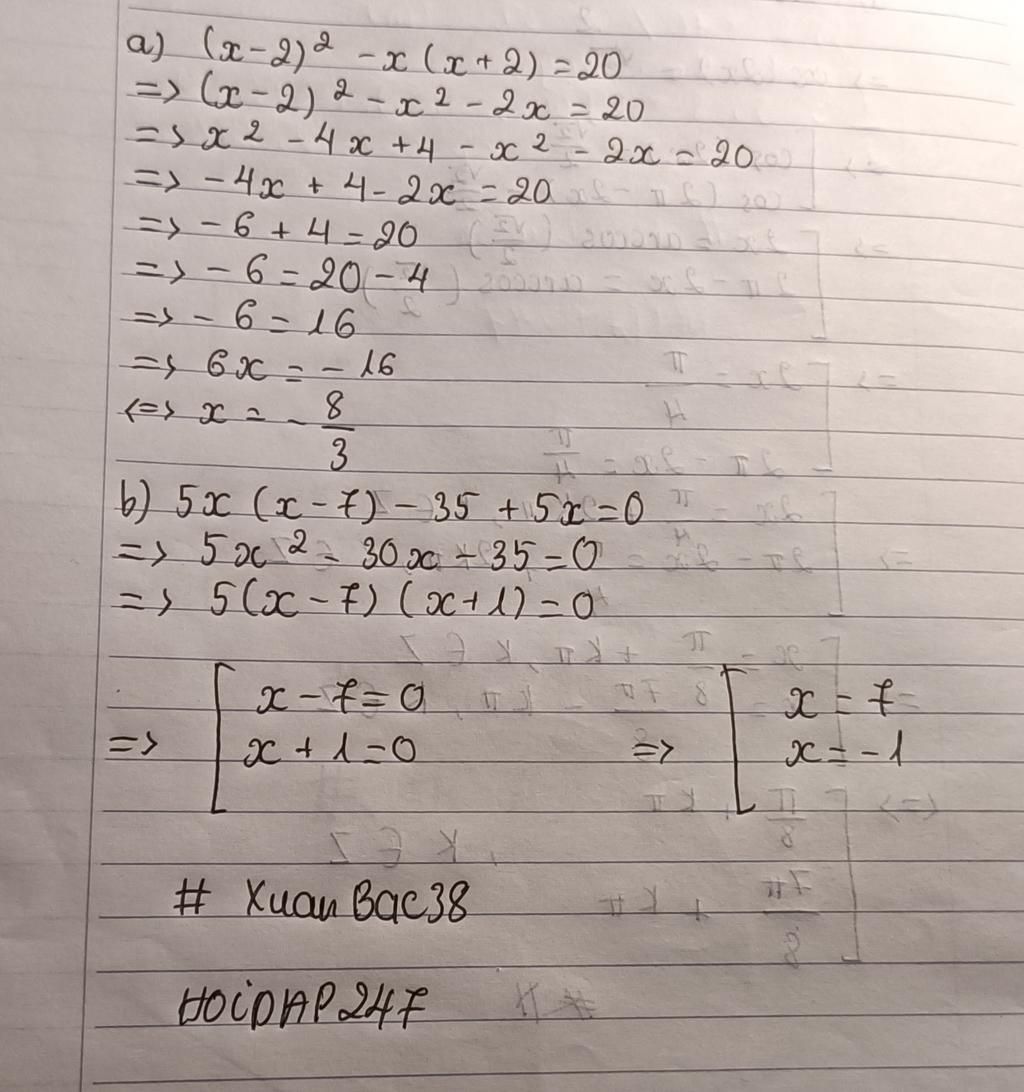 a) (x-2)² - x(x+2) = 20
=> (x-2)² - x² - 2x = 20
=> x² - 4x + 4 - x² - 2x = 20
=> -4x + 4 - 2x = 20
=> -6 + 4 = 20
=> -6 = 20 - 4
=> -6 = 16
=> 6x = -16
<=> x = -8/3
b) 5x(x-7) - 35 + 5x = 0
=> 5x² - 30x - 35 = 0
=> 5(x-7)(x+1) = 0
=> [ x - 7 = 0 => [ x = 7
x + 1 = 0 x = -1
# XuanBac38
HOiDAP247